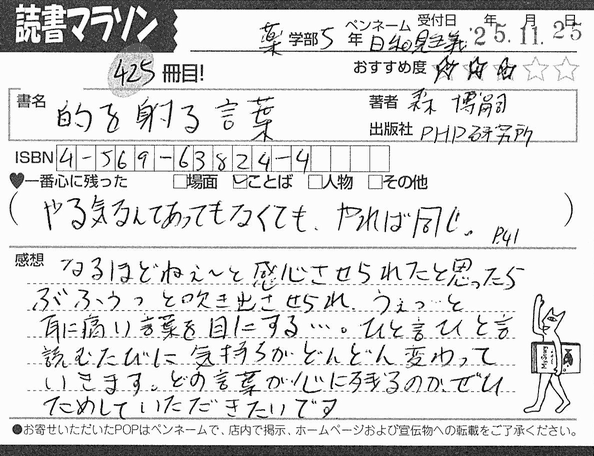 読書マラソン
薬 学部 5 年 ペンネーム 日和見主義 受付日 '25年 11月 25日
425 冊目!
おすすめ度 ★★★☆☆
書名 的を射る言葉
著者 森 博嗣
出版社 PHP研究所
ISBN 4-569-63824-4
♥一番心に残った □場面 ☑ことば □人物 □その他
(やる気なんてあってもなくても、やれば同じ。 P.41)
感想
なるほどねぇ〜と感心させられたと思ったら
ぶふぅっと吹き出させられ、うぇっ…と
耳に痛い言葉を目にする…。ひと言ひと言
読むたびに気持ちがどんどん変わって
いきます。どの言葉が心に残るのか、ぜひ
ためしていただきたいです
●お寄せいただいたPOPはペンネームで、店内で掲示、ホームページおよび宣伝物への転載をご了承ください。